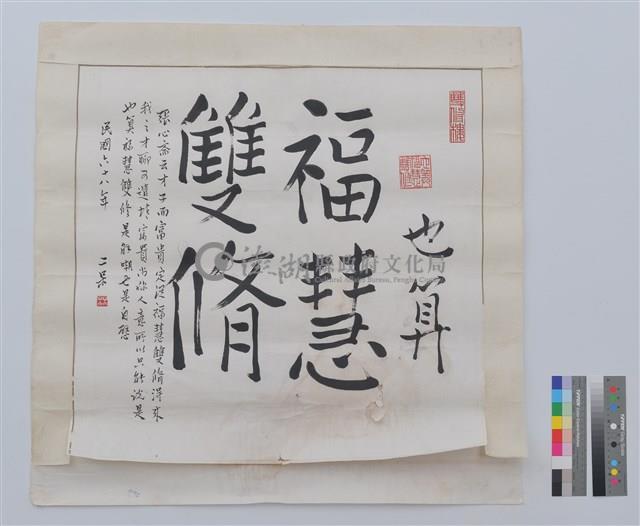 也算
福慧
雙脩
張心斎云才子而富貴定從福慧雙脩得來
我之才聊可遣於富貴尚人意所以只能說是
也算福慧雙修是解嘲也是自慰
民國六十八年
二吳
雙脩樓
澎湖縣政府文化局
Cultural Affairs Bureau, Penghu